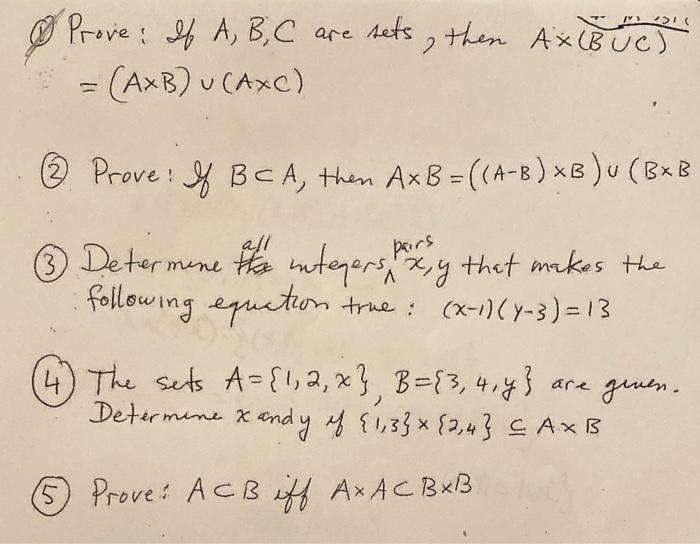 ① Prove: If A, B, C are sets, then A×(B∪C)
= (A×B) ∪ (A×C)
② Prove: If B⊂A, then A×B = ((A-B)×B) ∪ (B×B
③ Determine all integers pairs x, y that makes the
following equation true: (x-1)(y-3)=13
④ The sets A={1,2,x}, B={3,4,y} are given.
Determine x and y if {1,3}×{2,4} ⊆ A×B
⑤ Prove: A⊂B iff A×A⊂B×B